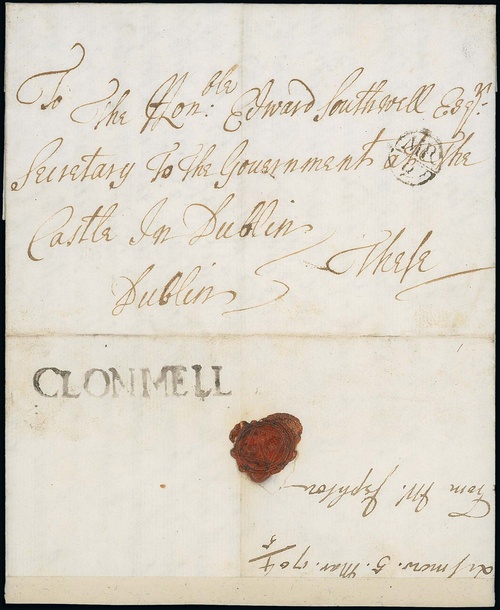 To The Hon:ble Edward Southwell Esqr:
Secretary To The Government att The
Castle In Dublin
These
Dublin
MR
CLONMELL
From Mr. Jephson
Lismore. 5. Mar. 1704/5